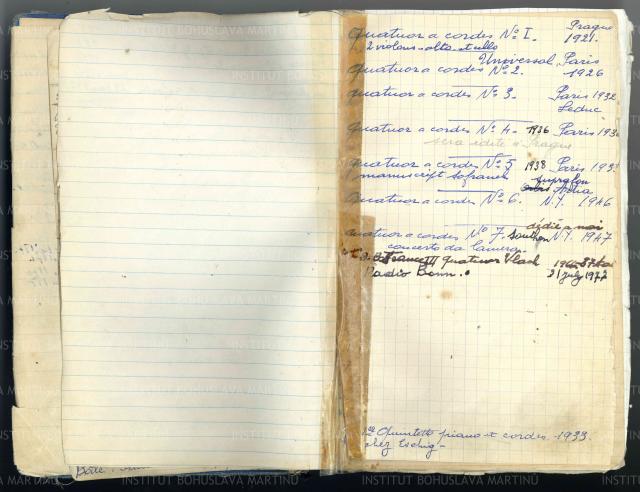 Prague
Quatuor a cordes No I. 1921.
2 violons-alto et cello
Universal Paris
Quatuor a cordes No 2. 1926
Quatuor a cordes No 3. Paris 1932
Leduc
Quatuor a cordes No 4. 1936 Paris
sera édité à Prague
Quatuor a cordes No 5 1938 Paris
manuscript supraphon
Artia
Quatuor a cordes No 6. N.Y. 1946
dédié a moi
Quatuor a cordes No 7. Southern N.Y. 1947
concerto da Camera
quatuor Vlach
Radio Bonn. 21 July 1977
Quintette piano et cordes 1933.
chez Eschig-
INSTITUT BOHUSLAVA MARTINŮ